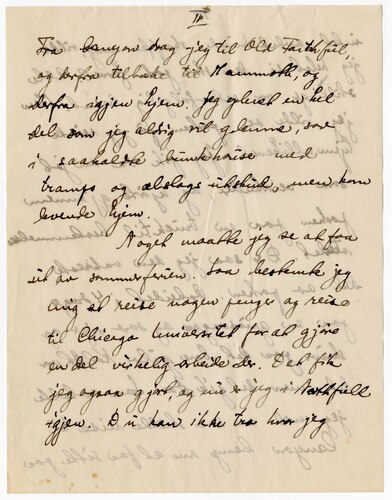 IV
Fra Canyon drog jeg til Old Faithful,
og derfra tilbake til Mammoth, og
derfra igjen hjem. Jeg oplevet en hel
del som jeg aldrig vil glemme, sov
i saakaldte bunkhouse med
tramps og alslags utskud, men kom
levende hjem.
Noget maatte jeg se at faa
ut av sommerferien. Saa bestemte jeg
mig at reise nogen penger og reise
til Chicago Universitet for at gjøre
en del virkelig arbeide der. Det fik
jeg ogsaa gjort, og nu er jeg i Northfield
igjen. Du kan ikke tro hvor jeg